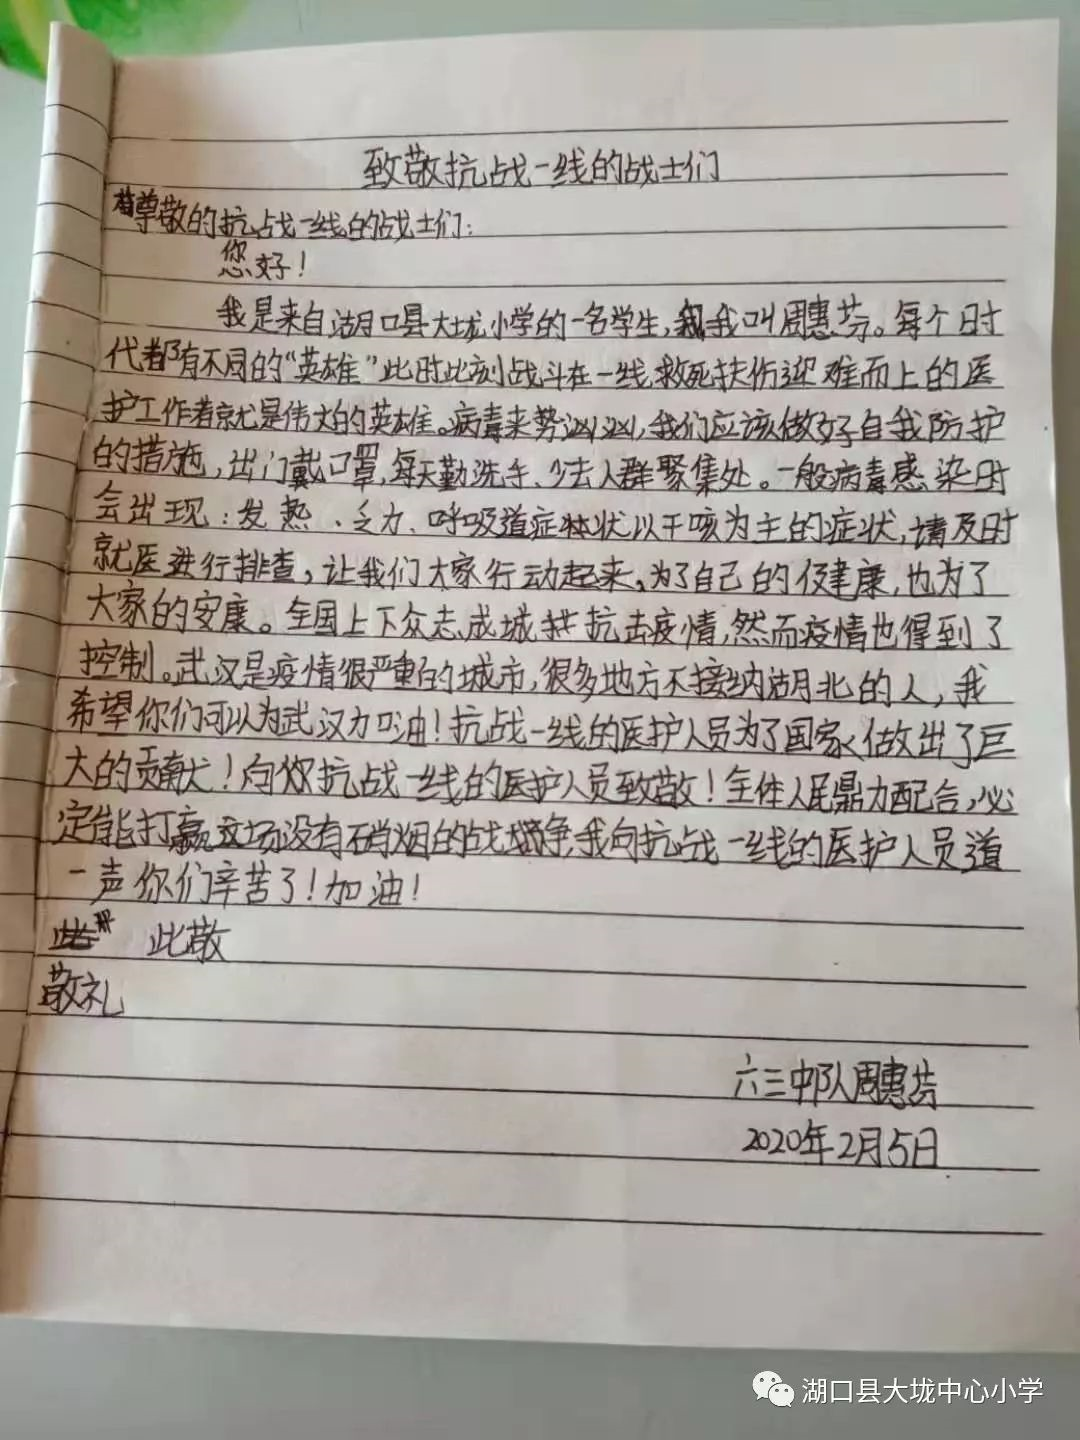 致敬抗战一线的战士们
尊敬的抗战一线的战士们:
您好!
我是来自湖口县大垅小学的一名学生,我叫周惠芬。每个时
代都有不同的“英雄”此时此刻战斗在一线救死扶伤迎难而上的医
护工作者就是伟大的英雄。病毒来势汹汹,我们应该做好自我防护
的措施,出门戴口罩,每天勤洗手、少去人群聚集处。一般病毒感染时
会出现:发热、乏力、呼吸道症状以干咳为主的症状,请及时
就医进行排查,让我们大家行动起来,为了自己的健康,也为了
大家的安康。全国上下众志成城抗击疫情,然而疫情也得到了
控制。武汉是疫情很严重的城市,很多地方不接纳湖北的人,我
希望你们可以为武汉加油!抗战一线的医护人员为了国家做出了巨
大的贡献!向你抗战一线的医护人员致敬!全体人民鼎力配合,必
定能打赢这场没有硝烟的战争,我向抗战一线的医护人员道
一声你们辛苦了!加油!
此敬
敬礼
六三中队周惠芬
2020年2月5日
湖口县大垅中心小学